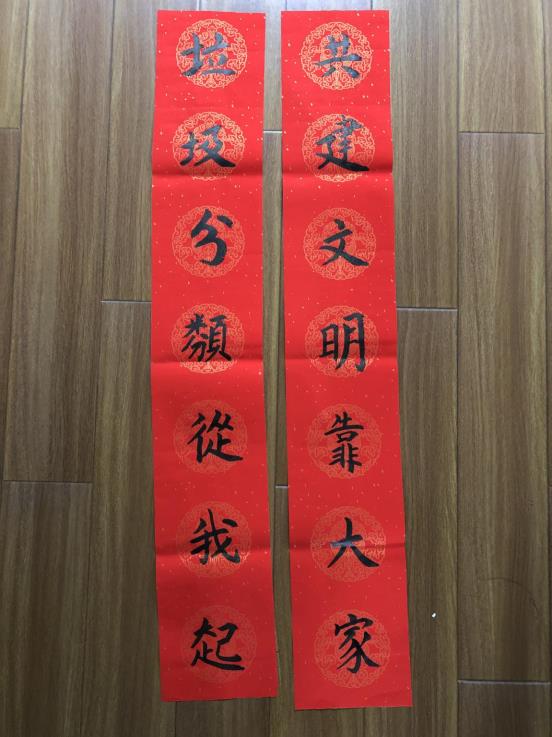 共建文明靠大家
垃圾分類從我起